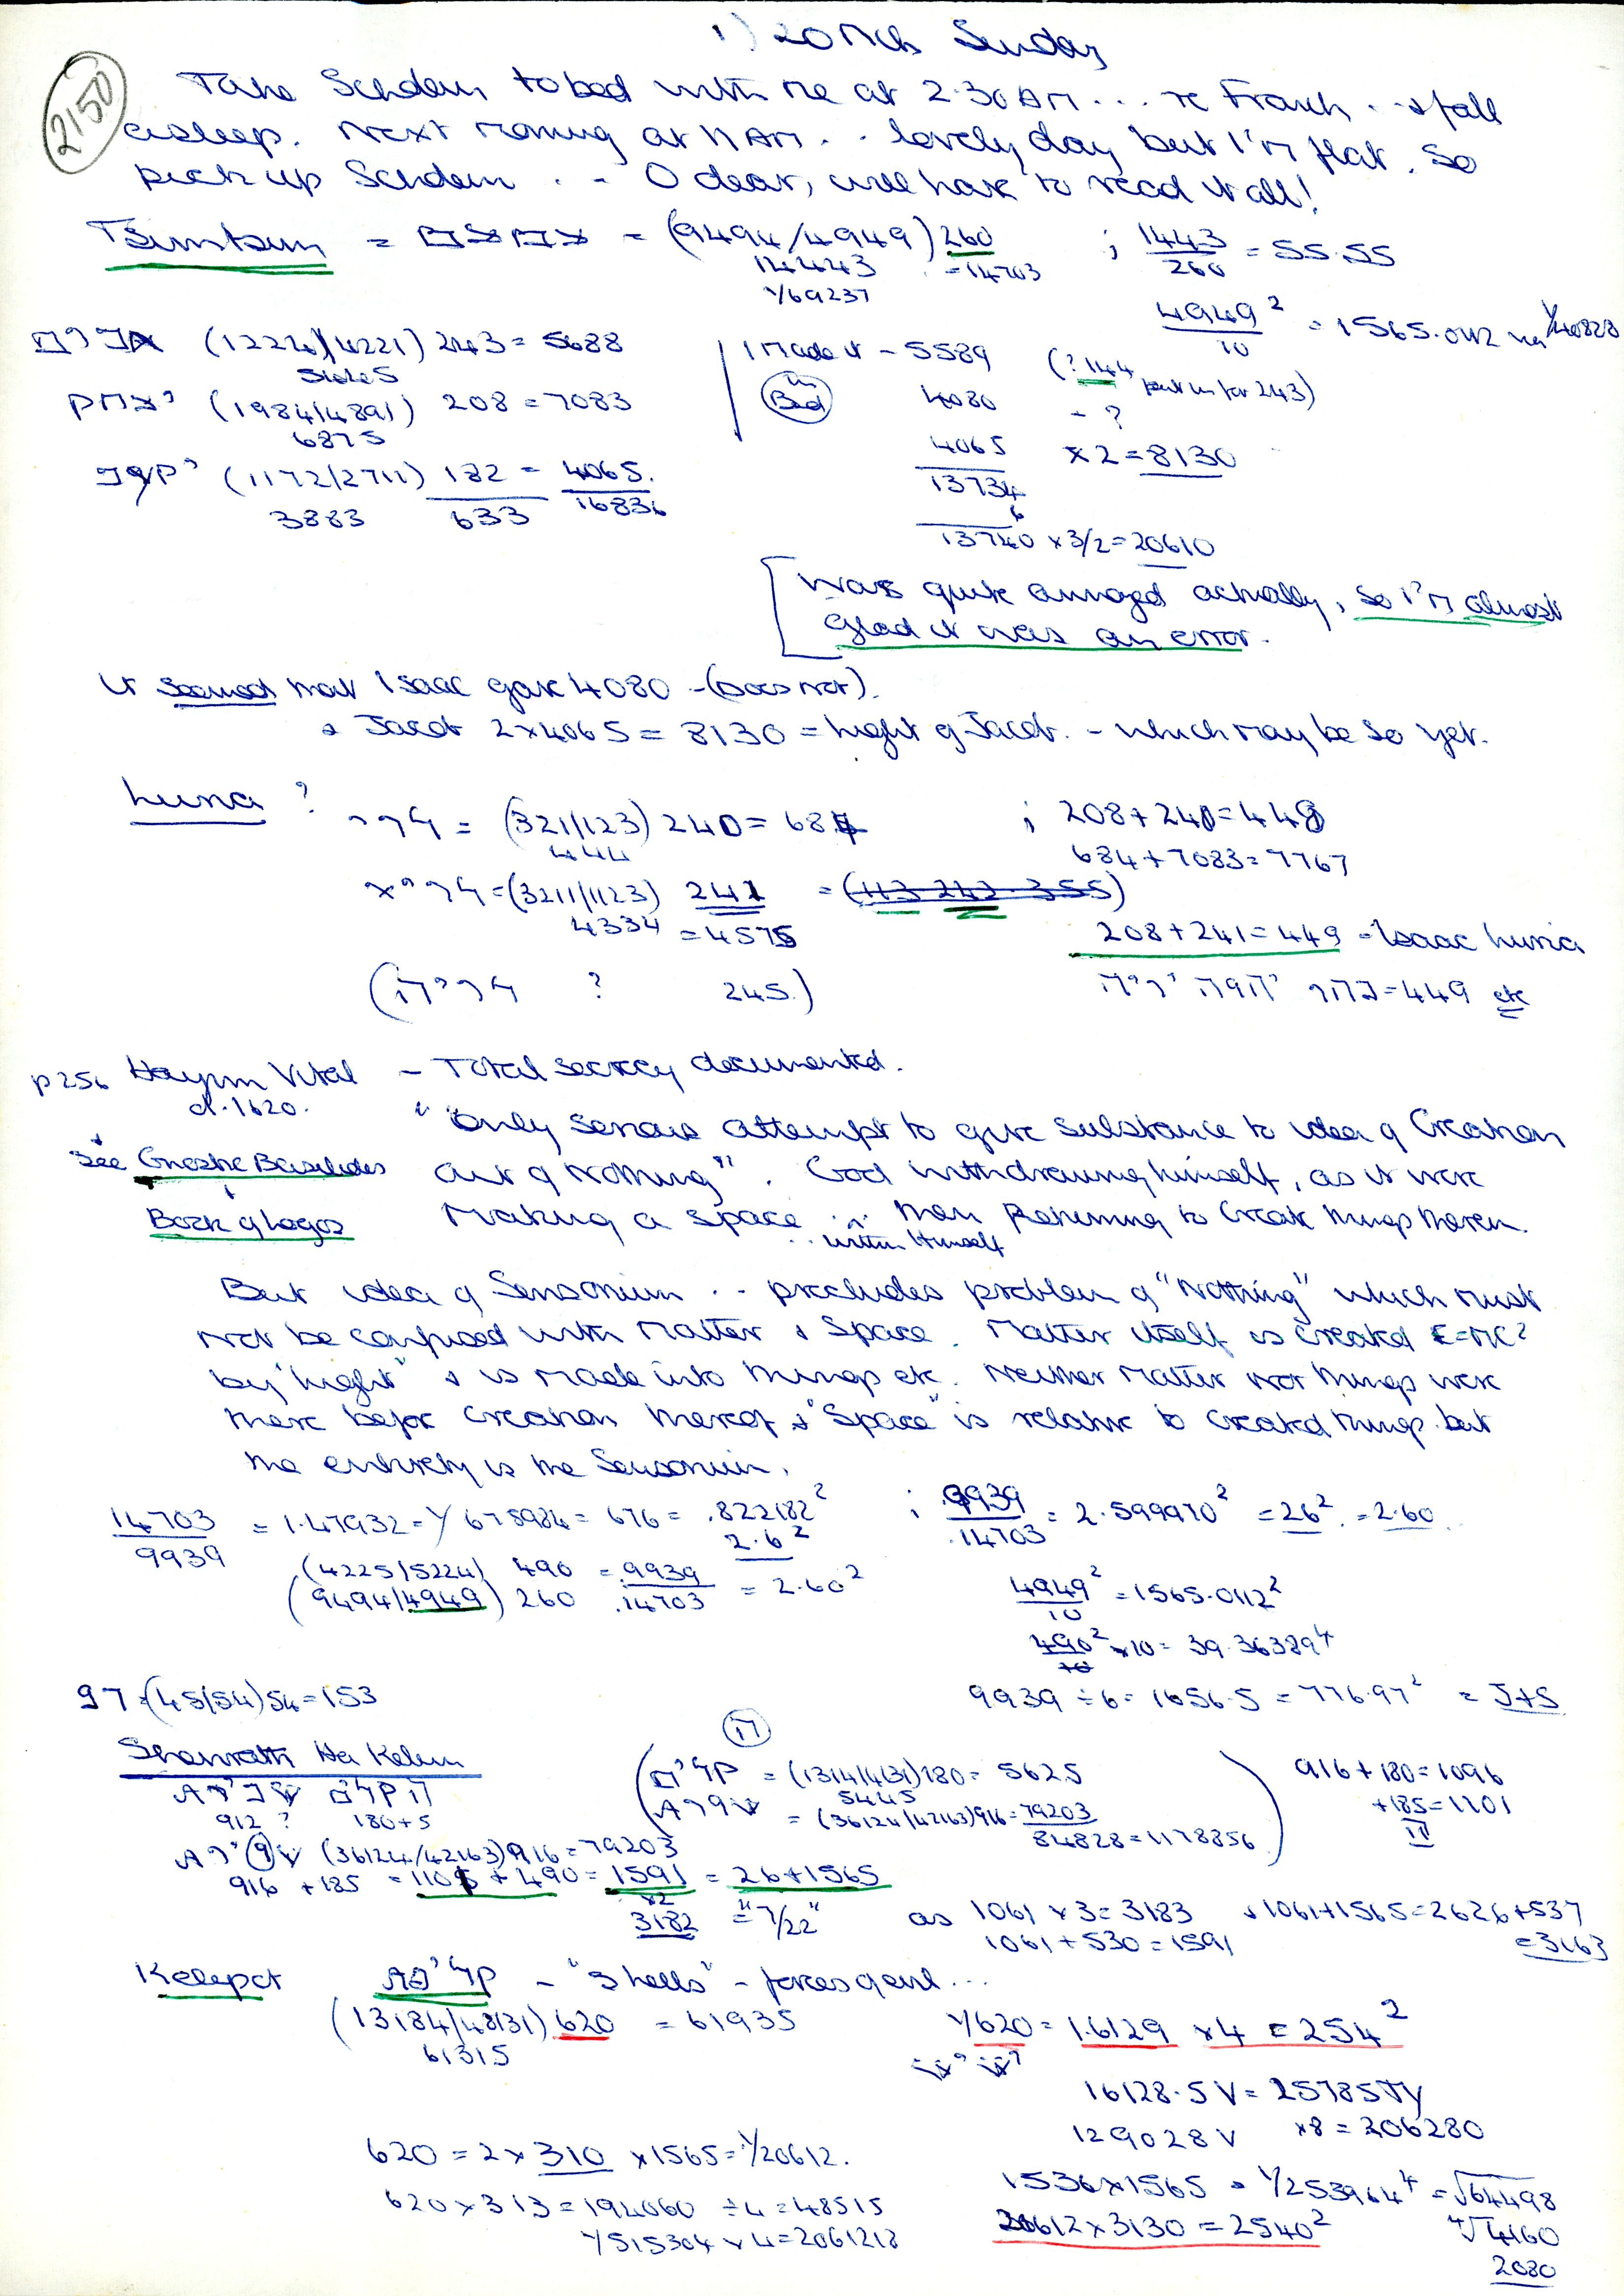 1) 20 Mch Sunday
2150
Take Scholem to bed with me at 2.30 AM ... re Frank .. & fall
asleep. Next morning at 11 AM .. lovely day but I'm flat. So
pick up Scholem .. - O dear, will have to read it all!
Tsimtsum = םצמצ = (9494/4949) 260 ; 1443/260 = 55.55
14443 = 14703
1/69237
4949²/10 = 1565.0112
(1224/4221) 243 = 5688
5445
(1984/4891) 208 = 7083
6875
(1172/2711) 182 = 4065.
3883 633 16836
I made it - 5589 (? 144 put in for 243)
in Bed 4080 - ?
4065 x 2 = 8130
13734
6
13740 x 3/2 = 20610
Was quite amazed actually, so I'm almost
glad it was an error.
It seemed that Isaac gave 4080 - (Does not).
& Jacob 2x4065 = 8130 = Light of Jacob. - which may be so yet.
Luria ? = (321/123) 240 = 684 ; 208 + 240 = 448
444 684 + 7083 = 7767
(3211/1123) 241 = (113 242 355)
4334 = 4575
208 + 241 = 449 = Isaac Luria
( ? 245.) = 449 etc
p 256 Hayyim Vital - Total secrecy documented.
d. 1620.
"Only serious attempt to give substance to idea of Creation
See Gnostic Basilides out of Nothing". God withdrawing himself, as it were
Book of Logos Making a space .. within Himself .. then Returning to Create things therein.
But idea of Sensorium .. precludes problem of "Nothing" which must
not be confused with Matter & Space. Matter itself is created E=MC²
by "Light" & is made into things etc. Neither Matter nor things were
there before Creation thereof & "Space" is relative to Created things but
the entirety is the Sensorium.
14703/9939 = 1.47932 = 1/675984 = 676 = .822182² ; 9939/.14703 = 2.599970² = 26² = 2.60
2.6²
(4225/5224) 490 = 9939
(9494/4949) 260 .14703 = 2.60²
4949²/10 = 1565.0112²
490² x 10 = 39.36389⁴
(45/54) 54 = 153
9939 ÷ 6 = 1656.5 = 776.97² = J+S
Shevirath Ha Kelim
912 ? 180+5
(36124/42163) 916 = 79203
916 + 185 = 1101 + 490 = 1591 = 26 + 1565
x2
3182 = "7/22"
= (1314/4131) 180 = 5625
5445
= (36124/42163) 916 = 79203
84828 = 1178856
916 + 180 = 1096
+ 185 = 1101
as 1061 x 3 = 3183 & 1061 + 1565 = 2626 + 537
1061 + 530 = 1591 = 3163
Kelepot - "Shells" - forces of evil ...
(13184/48131) 620 = 61935
61315
1/620 = 1.6129 x 4 = 254²
16128.5 V = 25785 Ty
129028 V x8 = 206280
620 = 2 x 310 x 1565 = 1/20612.
620 x 313 = 194060 ÷ 4 = 48515
1/515304 x 4 = 2061218
1536 x 1565 = 1/253964⁴ = √64498
20612 x 3130 = 2540² ⁴√4160
2080